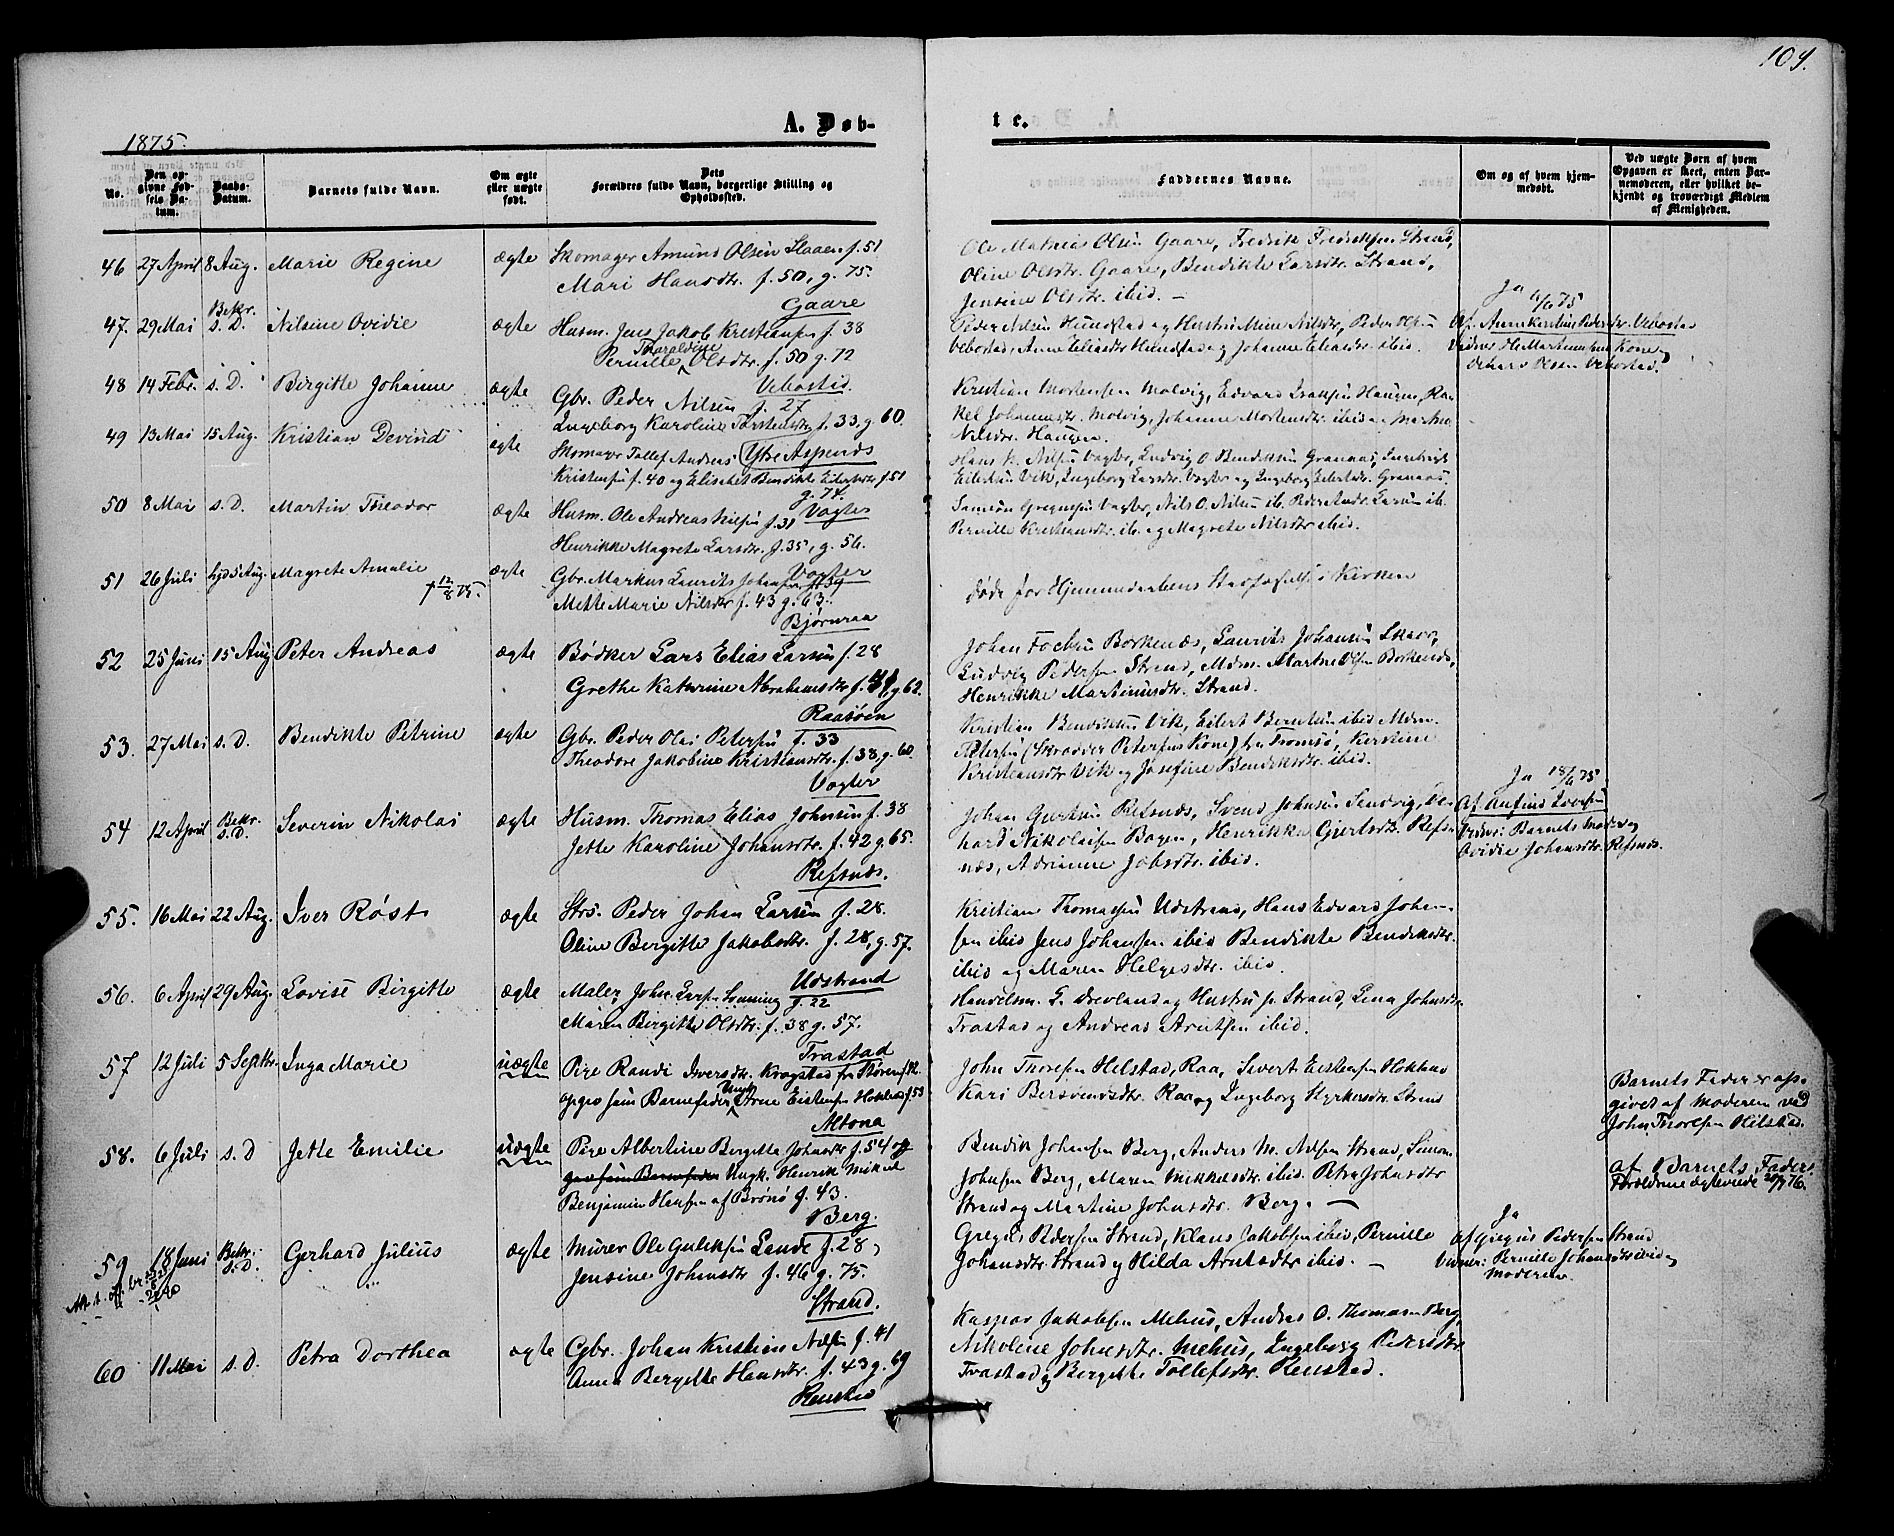 104.
1875.
A. Døb-
te.
No.
Den op-
givne Fød-
sels Da-
tum.
Daabs-
Datum.
Barnets fulde Navn.
Om ægte
eller uægte
født.
Dets
Forældres fulde Navn, borgerlige Stilling og
Opholdssted.
Faddernes Navne.
Om og af hvem hjem-
medøbt.
Ved uægte Børn af hvem
Opgaven er skeet, enten Bar-
nemoderen, eller hvilket be-
kjendt og troværdigt Medlem
af Menigheden.
46 27 April 8 Aug. Marie Regine ægte Skomager Amund Olsen f. 51
Mari Hansdtr. f. 50, g. 75.
Gaare
Ole Mathias Olsen Gaare, Fredrik Fredriksen Strand,
Oline Olsdtr. Gaare, Bendikte Larsdtr. Strand,
Jensine Olsdtr. ibid. –
47. 29 Mai Bekr. s. D. Nilsine Ovidie ægte Husm. Jens Jakob Kristiansen f. 38
Pernille Tharaldine Olsdtr. f. 50 g. 72
Vebostad.
Peder Nilsen Hundstad og Hustru Mine Nilsdtr, Peder Olsen
Vebostad, Anne Eliasdtr Hundstad og Johanne Eliasdtr ibid.
Ja 6/6 75
Af Anne Kirstine Pedersdtr. Vebostad
Vidner H. Martinussens Kone og
Olsen Vebostad.
48 14 Febr. s. D. Birgitte Johanne ægte Gbr. Peder Nilsen f. 27
Ingeborg Karoline Torstensdtr f. 33. g. 60
Ytre Aspenæs
Kristian Mortensen Molvig, Edvard Isaksen Haugen, Ra-
kel Johannesdtr. Molvig, Johanne Mortensdtr. ibid og Martha
Nilsdtr. Haugen.
49 13 Mai 15 Aug. Kristian Devind ægte Skomager Tollef Andreas
Kristensen f. 40 og Elisabet Bendikte Eilertsdtr f. 51
g. 74. Vagter
Hans N. Nilsen Vagter, Ludvig O Bendiksen Granaas, Ingebrigt
Eilertsen Vik, Ingeborg Larsdtr. Vagter og Ingeborg Eilertsdtr. Granaas
50 8 Mai s. D. Martin Theodor ægte Husm. Ole Andreas Nilsen f. 31
Henrikke Magrete Larsdtr. f. 35, g. 56.
Vagter
Samson Gregusen Vagter, Nils O. Nilsen ib. Peder Andr. Larsen ib.
Pernille Kristiansdtr. ib. og Magrete Nilsdtr ibid.
51 26 Juli hjd 5 Aug. Magrete Amalie ægte Gbr. Markus Laurits Johansen f. 39
† 12/8 75.
Mette Marie Nilsdtr f. 43 g. 63.
Bjørnraa
Døde før Hjemmedaabens Stadfæstelse i Kirken
52 25 Juni 15 Aug Peter Andreas ægte Bødker Lars Elias Larsen f. 28
Grethe Katrine Abrahamsdtr f. 41, g 62.
Raasøen
Johan Fochsen Borkenæs, Laurits Johansen Skav,
Ludvig Pedersen Strand, Mdm. Martine Olsen Borkenæs,
Henrikke Martinusdtr. Strand.
53. 27 Mai s. D. Bendikte Petrine ægte Gbr. Peder Olai Petersen f. 33
Theodore Jakobine Kristiansdtr. f. 38, g. 60.
Vagter
Kristian Bendiksen Vik, Eilert Berntsen ibid Mdm.
Petersen (Skrædder Petersens Kone) fra Tromsø, Kirstine
Kristiansdtr Vik og Josefine Bendiksdtr. ibid.
54 12 April Bekr. s. D. Severin Nikolai ægte Husm. Thomas Elias Johnsen f. 38
Jette Karoline Johansdtr. f. 42 g. 65.
Refsnæs.
Johan Gjertsen Refsnæs, Svend Johnsen Sandvig, Ber-
hard Nikolaisen Bogen, Henrikke Gjertsdtr. Refs-
næs, Adriane Johsdtr. ibid.
Ja 18/4 75
Af Anfind
Vidner: Barnets Moder og
Ovidie Johansdtr. Refsnæs.
55. 16 Mai 22 Aug. Iver Røst ægte Strs. Peder Johan Larsen f. 28.
Oline Bergitte Jakobsdtr. f. 28, g. 57.
Udstrand
Kristian Thomassen Udstrand, Hans Edvard Johan-
sen ibid Jens Johansen ibid Bendikte Bendiksdtr.
ibid og Maren Helgesdtr. ibid.
56. 6 April 29 Aug. Lovise Birgitte ægte Maler John Ivers. Sonning f. 22
Maren Birgitte Olsdtr. f. 38 g. 57.
Trastad
Handelsm. G. Drevland og Hustru fr Strand, Lena Johnsdtr.
Trastad og Andreas Arntsen ibid.
57 12 Juli 5 Septbr. Inga Marie uægte Pige Randi Iversdtr. Kragstad fra Støren f. 52.
opgav som Barnefader Ungk Arne Eistensen Hokland f 53
Altona
John Thoresen Helstad, Raa, Sivert Eistensen Hokland
Kari Bersvendsdtr. Raa og Ingeborg Styrkersdtr. Strand
Barnets Fader er op-
givet af Moderen ved
John Thoresen Hilstad.
58. 6 Juli s. D Jette Emilie uægte Pige Albertine Bergette Johnsdtr f. 54 op
gav som Barnefader Ungk. Henrik Mikal
Benjamin Hansen af Brønø f. 43.
Berg.
Bendik Johansen Berg, Anders M. Nilsen Strand, Simon
Johnsen Berg, Maren Mikkelsdtr. ibid. Petra Johnsdtr
Strand og Martine Johnsdtr. Berg. –
af Barnets Fader.
Forældrene ægteviede 76.
59 18 Juni Bekr. s. D. Gerhard Julius ægte Murer Ole Guliksen Lande f. 28,
Jensine Johnsdtr f. 46 g. 75.
Strand.
Gregus Pedersen Strand, Klaus Jakobsen ibid, Pernille
Johansdtr. Strand og Hilda Arntsdtr ibid. –
Ja
af Gregus Pedersen Strand
Vidner: Pernille Johansdtr ibid og
Moderen.
60 11 Mai s. D. Petra Dorthea ægte Gbr. Johan Kristian Nilsen f. 41
Anna Bergitte Hansdtr. f. 43 g. 69
Renstad
Kaspar Jakobsen Mehus, Andrs O. Thomassen Berg,
Nikoline Johnsdtr. Mehus, Ingeborg Pedersdtr
Trastad og Bergitte Tollefsdtr. Renstad.